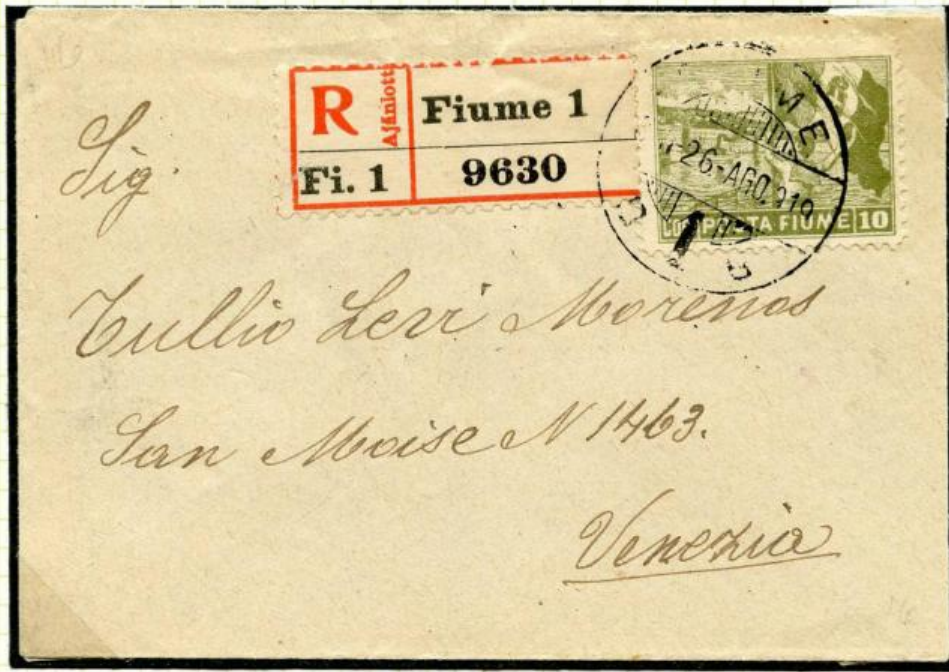 Sig.
R Ajánlott Fiume 1
Fi. 1 9630
26-AGO.919
POSTA FIUME 10
Tullio Levi Morenos
San Moise N 1463.
Venezia